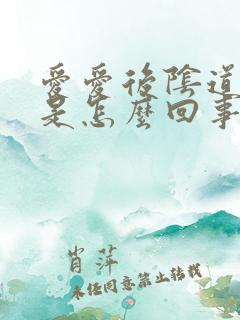 愛愛後陰道
是怎麼回事
肖萍
未经同意禁止转载